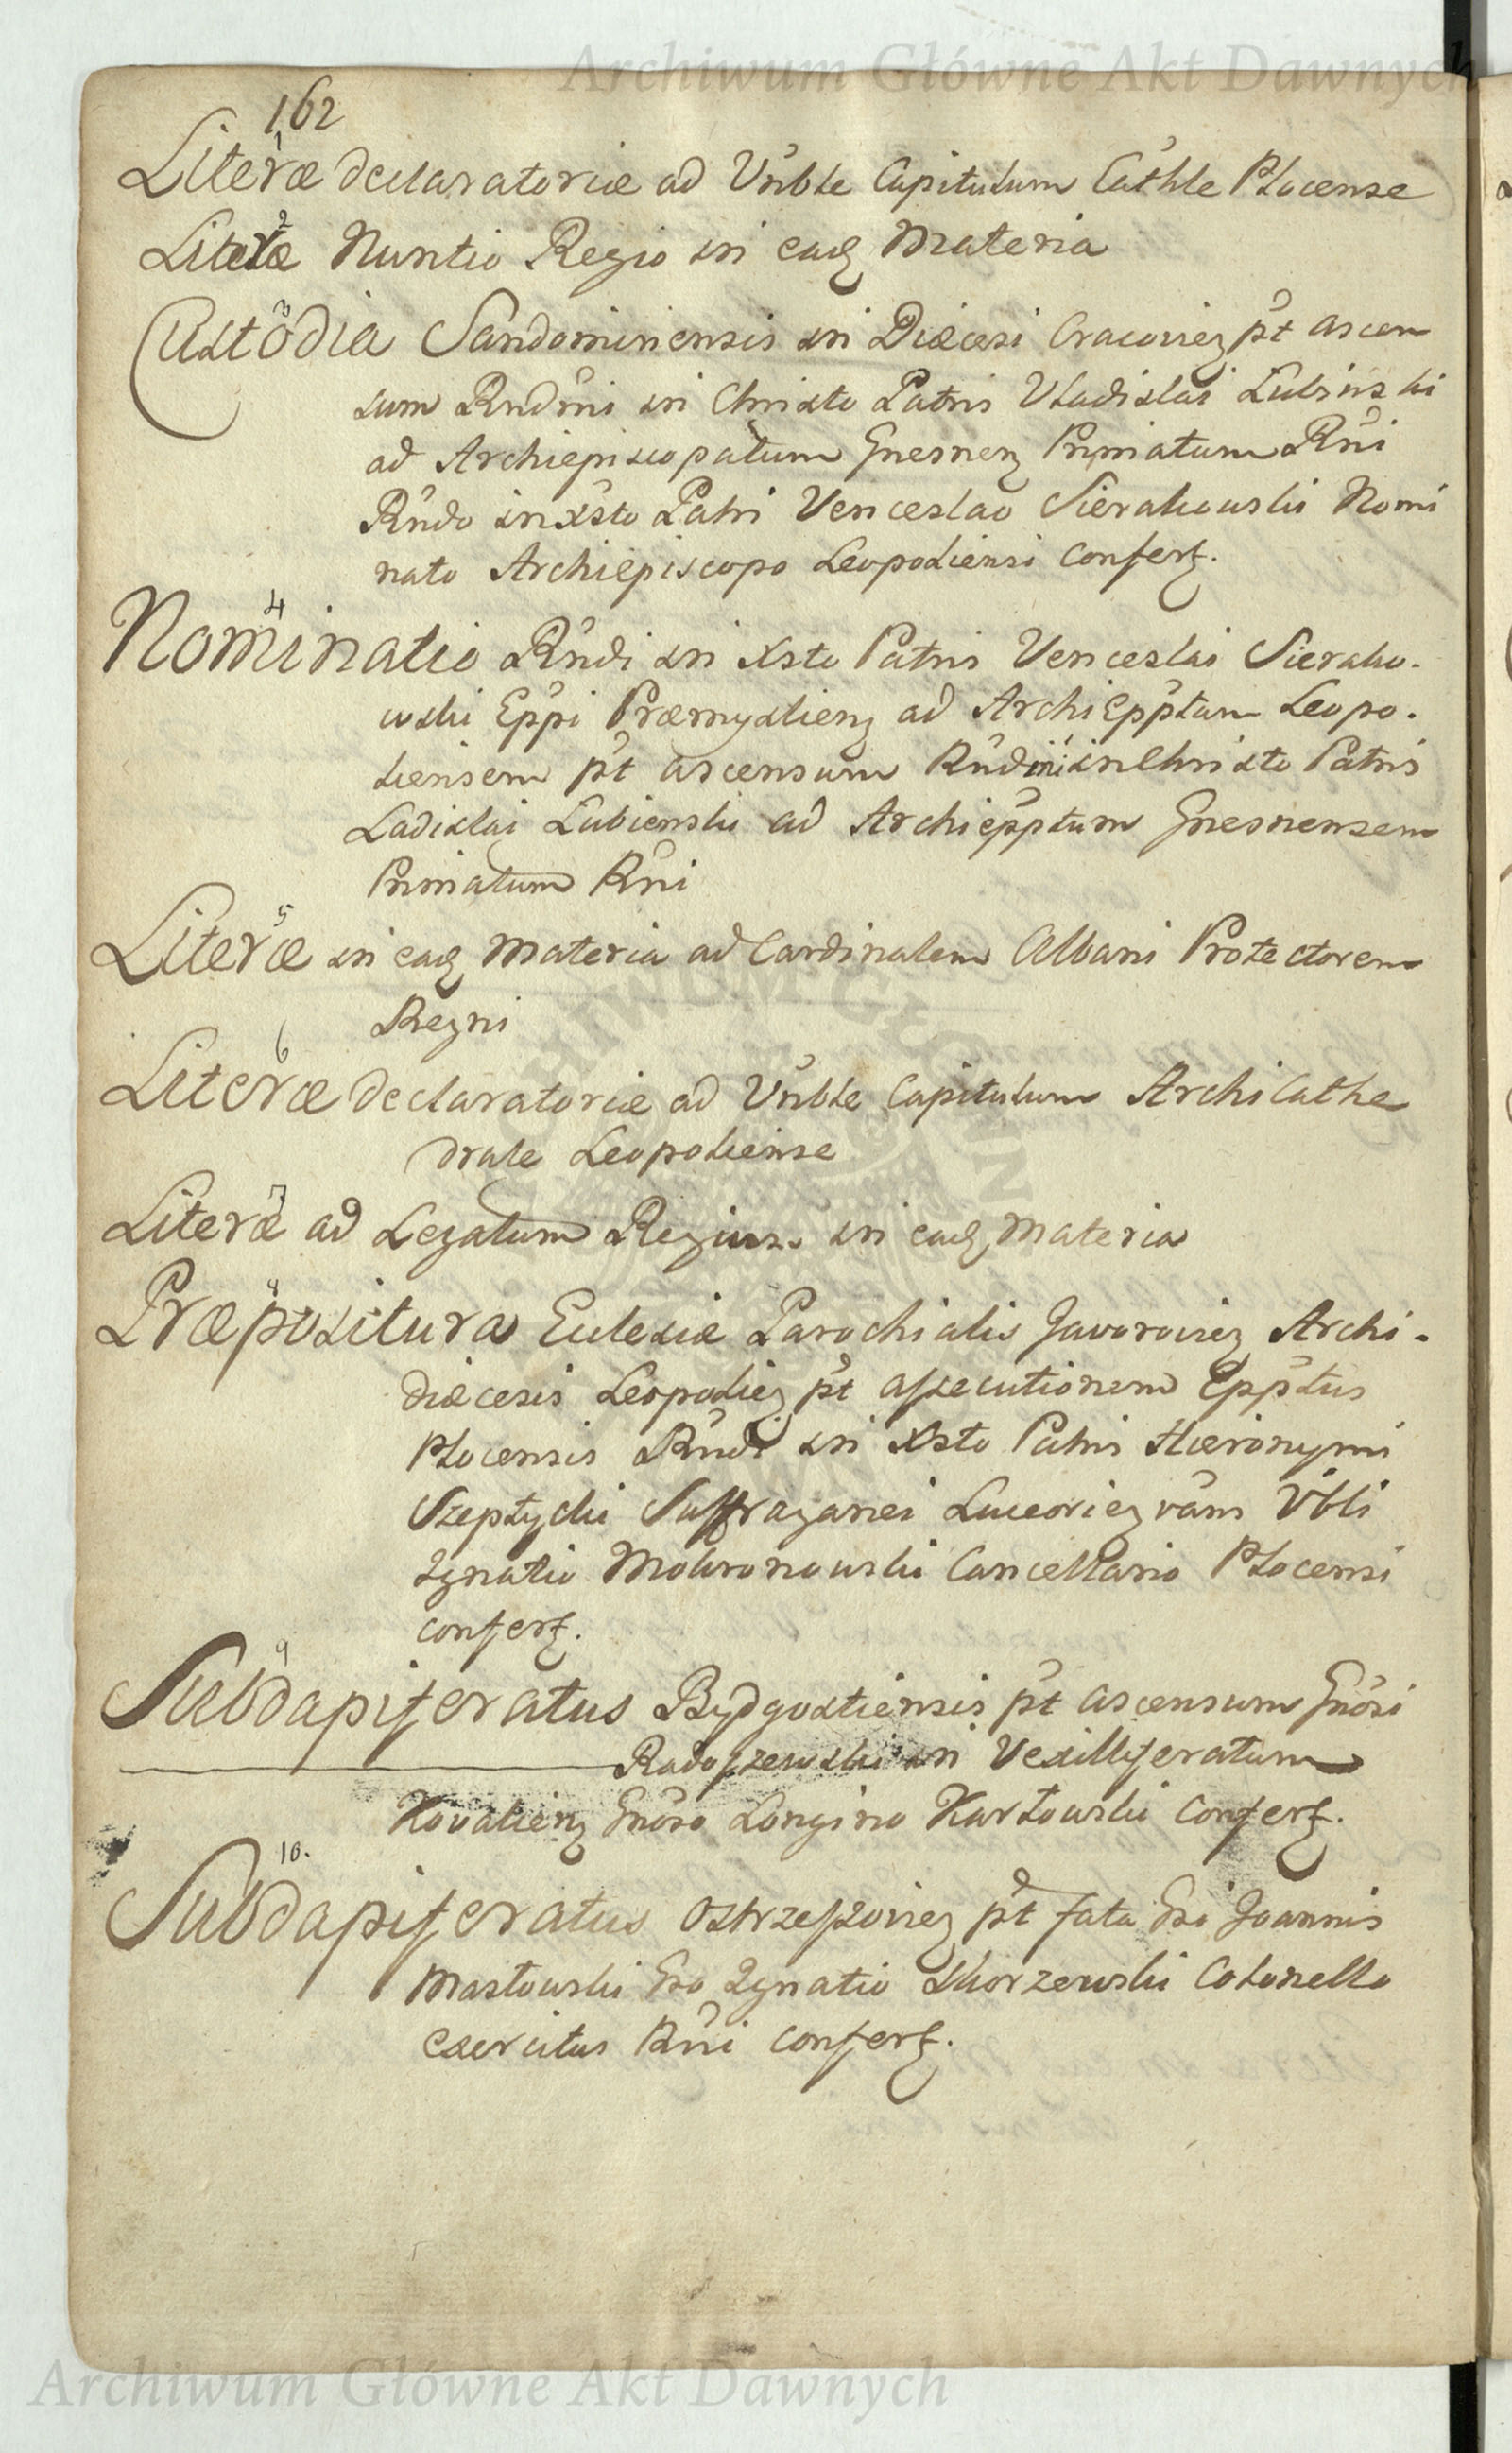 Archiwum Główne Akt Dawnych
162
1
Literæ declaratoriæ ad Vnble Capitulum Cathle Plocense
2
Literæ Nuntio Regio in eadq Materia
3
Custodia Sandomiriensis in Diæcesi Cracovienz pt ascen
sum Rndmi in Christo Patris Vladislai Lubinski
ad Archiepiscopatum Gnesnenz Primatum Rni
Rndo in Xsto Patri Venceslao Sierakowski Nomi
nato Archiepiscopo Leopoliensi Confertz.
4
Nominatio Rndi in Xsto Patris Venceslai Sierako-
wski Eppi Præmysliens ad Archiepptum Leopo-
liensem pt ascensum Rndmi in Christo Patris
Ladislai Lubienski ad Archiepptum Gnesnensem
Primatum Rni
5
Literæ in eadq Materia ad Cardinalem Albani Protectorem
Regni
6
Literæ declaratoriæ ad Vnble Capitulum ArchiCathe
drale Leopoliense
7
Literæ ad Legatum Regium in eadq Materia
8
Præpositura Eclesiæ Parochialis Javorovienz Archi-
diæcesis Leopolienz pt assecutionem Epptus
Plocensis Rndi in Xsto Patris Hieronymi
Szeptycki Suffraganei Luceorienz Vbli
Ignatio Mokronowski Cancellario Plocensi
confertz.
9
Subdapiferatus Bydgostiensis pt ascensum Gnosi
Radoszewski in Vexilliferatum
Kovalienz Gnoso Longino Karłowski Confertz.
10.
Subdapiferatus Ostrzeszovienz pt fata Gsi Joannis
Masłowski Gso Ignatio Skorzewski Colonello
exercitus Rni Confertz.
Archiwum Główne Akt Dawnych